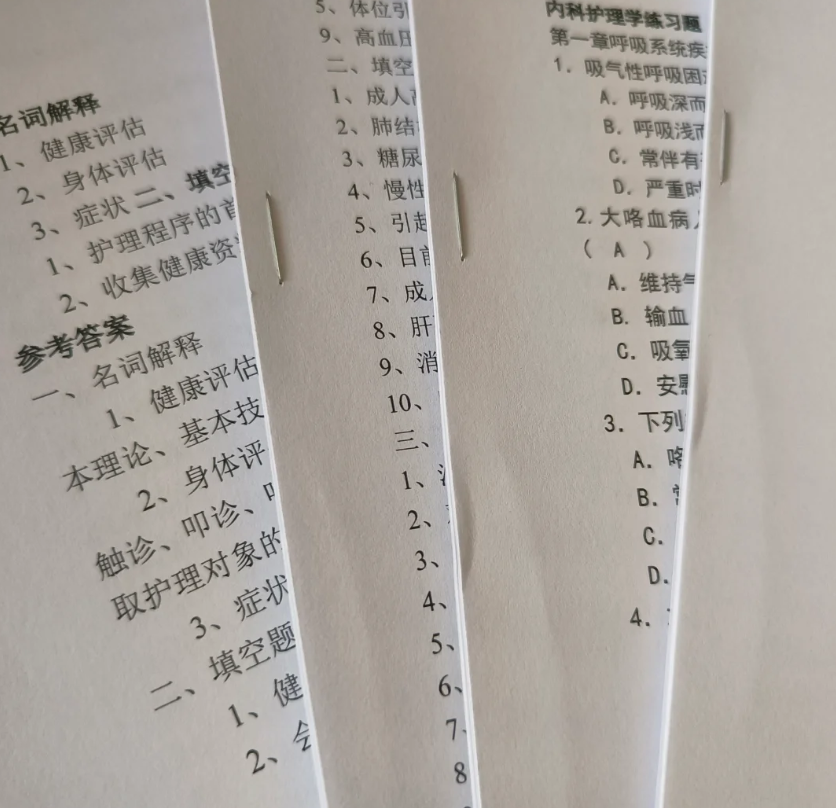 名词解释
1、健康评估
2、身体评估
3、症状 二、填空
1、护理程序的首
2、收集健康资
参考答案
一、名词解释
1、健康评估
本理论、基本技
2、身体评
触诊、叩诊、
取护理对象的
3、症状
二、填空题
1、健
2、会
5、体位引
9、高血压
二、填空
1、成人
2、肺结
3、糖尿
4、慢性
5、引起
6、目前
7、成
8、肝
9、消
10、
三、
1、
2、
3、
4、
5、
6、
7、
8
内科护理学练习题
第一章呼吸系统疾
1. 吸气性呼吸困
A. 呼吸深而
B. 呼吸浅而
C. 常伴有
D. 严重时
2. 大咯血病人
( A )
A. 维持气
B. 输血
C. 吸氧
D. 安慰
3. 下列
A. 咯
B. 常
C.
D.
4.